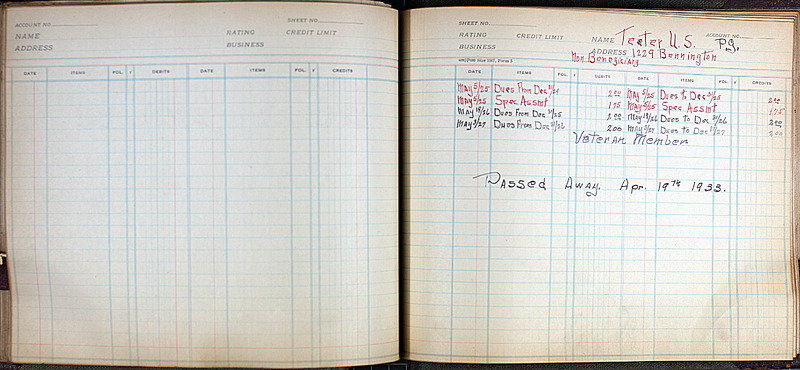 SHEET NO.
ACCOUNT NO.
NAME RATING CREDIT LIMIT
ADDRESS BUSINESS
DATE ITEMS FOL. √ DEBITS DATE ITEMS FOL. √ CREDITS
SHEET NO.
RATING CREDIT LIMIT NAME Teeter U.S. P.G. ACCOUNT NO.
BUSINESS ADDRESS 1229 Bennington
Non Beneficiary
DATE ITEMS FOL. √ DEBITS DATE ITEMS FOL. √ CREDITS
May 5/25 Dues From Dec 31/24 2 00 May 5/25 Dues to Dec 31/25 2 00
May 5/25 Spec Assmt 1 75 May 5/25 Spec Assmt 1 75
May 19/26 Dues From Dec 31/25 2 00 May 19/26 Dues to Dec 31/26 2 00
May 2/27 Dues From Dec 31/26 2 00 May 2/27 Dues to Dec 31/27 2 00
Veteran Member
Passed Away. Apr. 19th 1933.